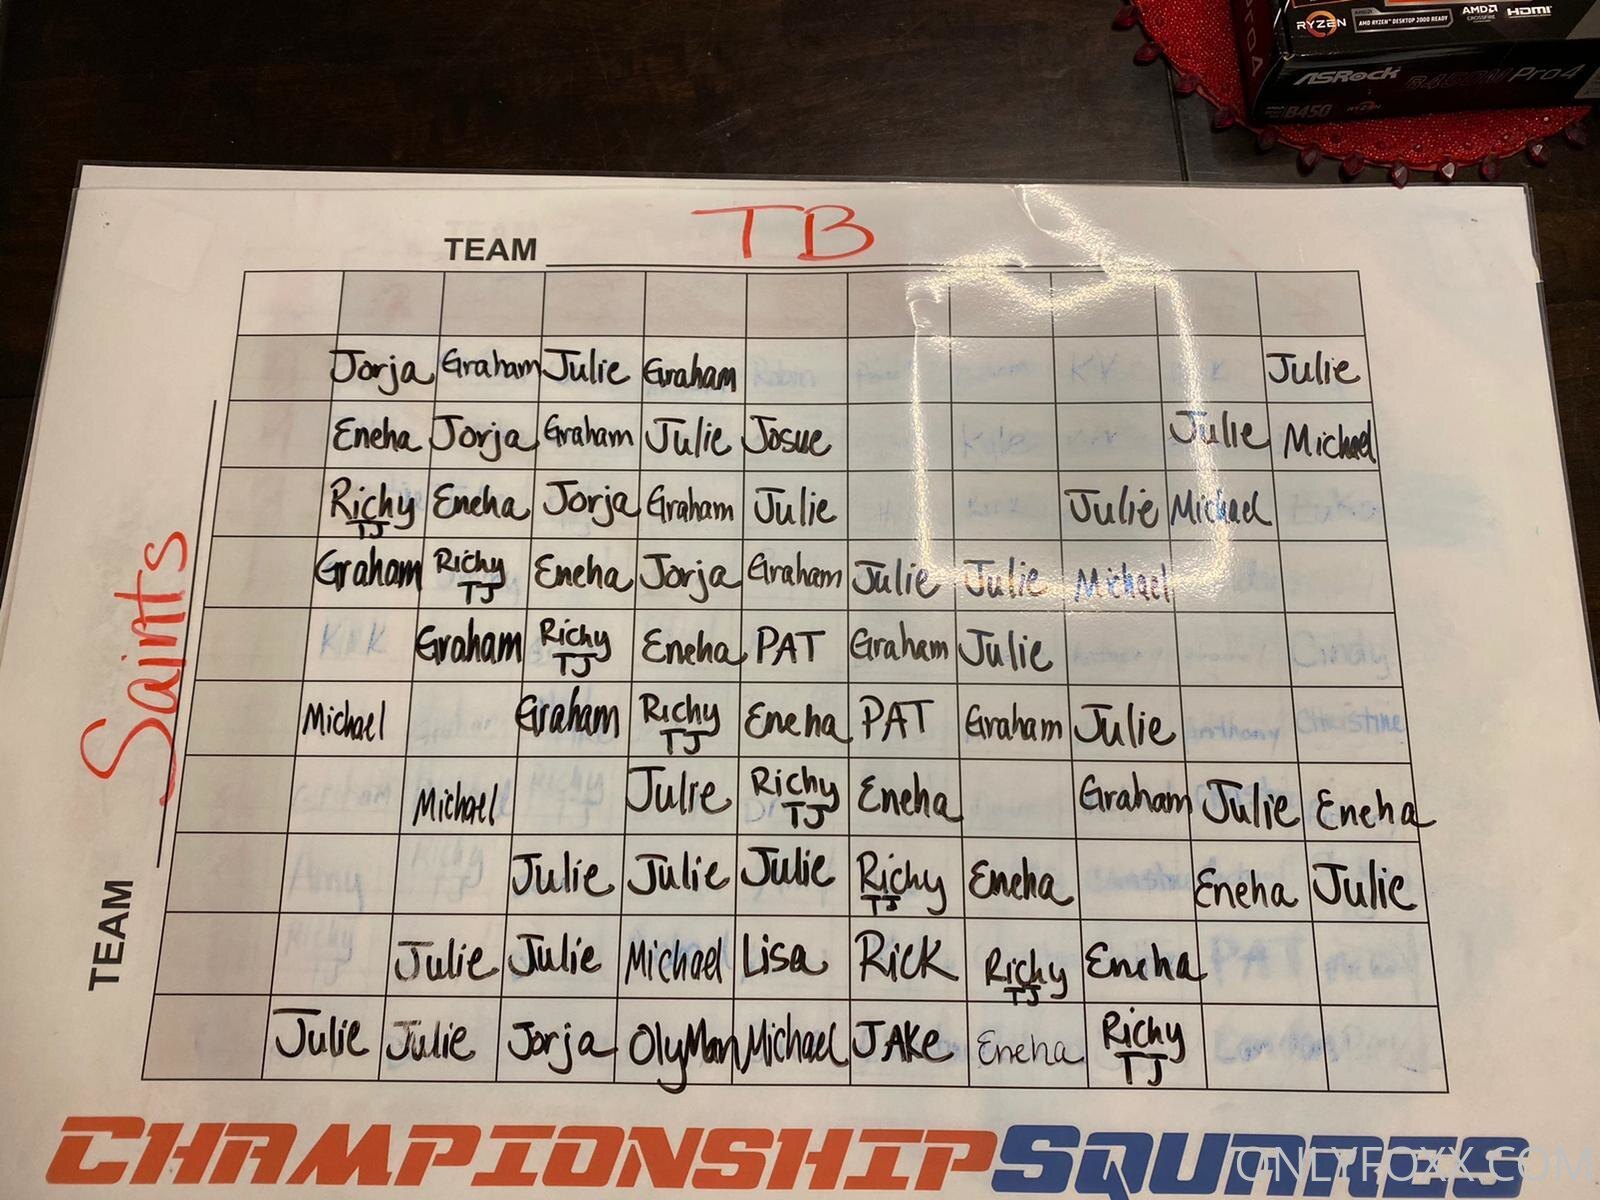 RYZEN AMD RYZEN™ DESKTOP 2000 READY AMD CROSSFIRE HDMI
ASRock B450M Pro4
B450 RYZEN
TEAM TB
Jorja Graham Julie Graham Julie
Eneha Jorja Graham Julie Josue Julie Michael
Richy TJ Eneha Jorja Graham Julie Julie Michael
Graham Richy TJ Eneha Jorja Graham Julie Julie Michael
Kirk Graham Richy TJ Eneha PAT Graham Julie Cindy
Michael Graham Richy TJ Eneha PAT Graham Julie Anthony Christine
Michael Julie Richy TJ Eneha Graham Julie Eneha
Amy Julie Julie Julie Richy TJ Eneha Eneha Julie
Richy TJ Julie Julie Michael Lisa Rick Richy TJ Eneha PAT
Julie Julie Jorja OlyMan Michael JAKe Eneha Richy TJ
TEAM Saints
CHAMPIONSHIPSQUARES
ONLYFOXX.COM